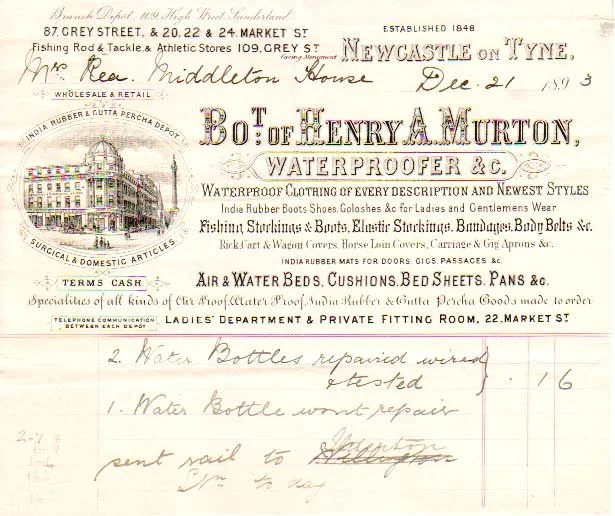 Branch Depot, 109, High Street, Sunderland.
87, GREY STREET, & 20, 22 & 24, MARKET ST
ESTABLISHED 1848.
Fishing Rod & Tackle, & Athletic Stores 109, GREY ST
Facing Monument
NEWCASTLE ON TYNE,
Mrs Rea. Middleton House Dec. 21 1893
WHOLESALE & RETAIL
INDIA RUBBER & GUTTA PERCHA DEPOT
SURGICAL & DOMESTIC ARTICLES
TERMS CASH
BOT. OF HENRY A. MURTON,
WATERPROOFER &C.
WATERPROOF CLOTHING OF EVERY DESCRIPTION AND NEWEST STYLES
India Rubber Boots Shoes, Goloshes &c for Ladies and Gentlemens Wear.
Fishing Stockings & Boots, Elastic Stockings, Bandages, Body Belts &c.
Rick, Cart & Wagon Covers, Horse Loin Covers, Carriage & Gig Aprons &c.
INDIA RUBBER MATS FOR DOORS, GIGS, PASSAGES &c.
AIR & WATER BEDS, CUSHIONS, BED SHEETS, PANS &c.
Specialities of all kinds of Air Proof, Water Proof, India Rubber & Gutta Percha Goods made to order
TELEPHONE COMMUNICATION
BETWEEN EACH DEPÔT
LADIES' DEPARTMENT & PRIVATE FITTING ROOM, 22, MARKET ST
2. Water Bottles repaired wired
& tested } . 1 6
1. Water Bottle wont repair
sent rail to Ilderton
to day